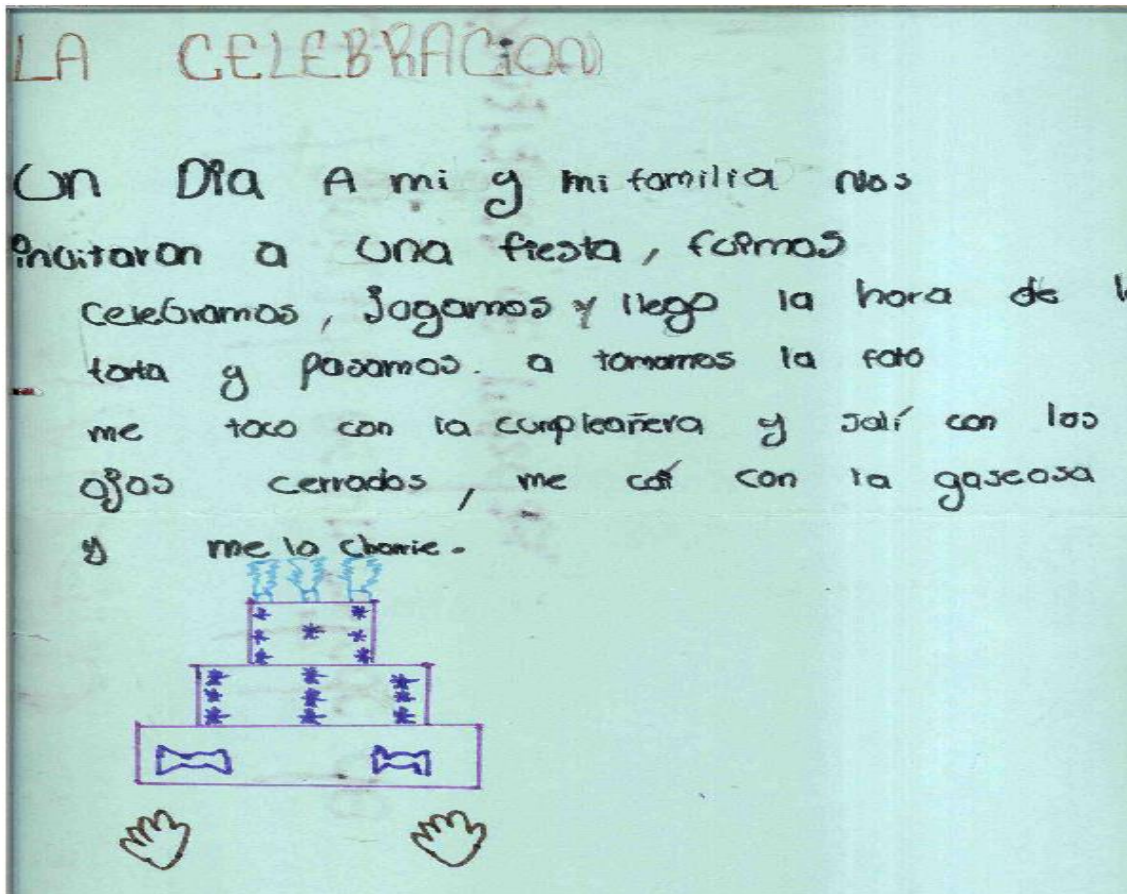 LA CELEBRACiON
Un Dia A mi y mi familia Nos
invitaron a una fiesta, fuimos
celebramos, Jugamos y llego la hora de l
torta y pasamos. a tomarnos la foto
me toco con la cumpleañera y salí con los
ojos cerrados, me caí con la gaseosa
y me la chorrie.